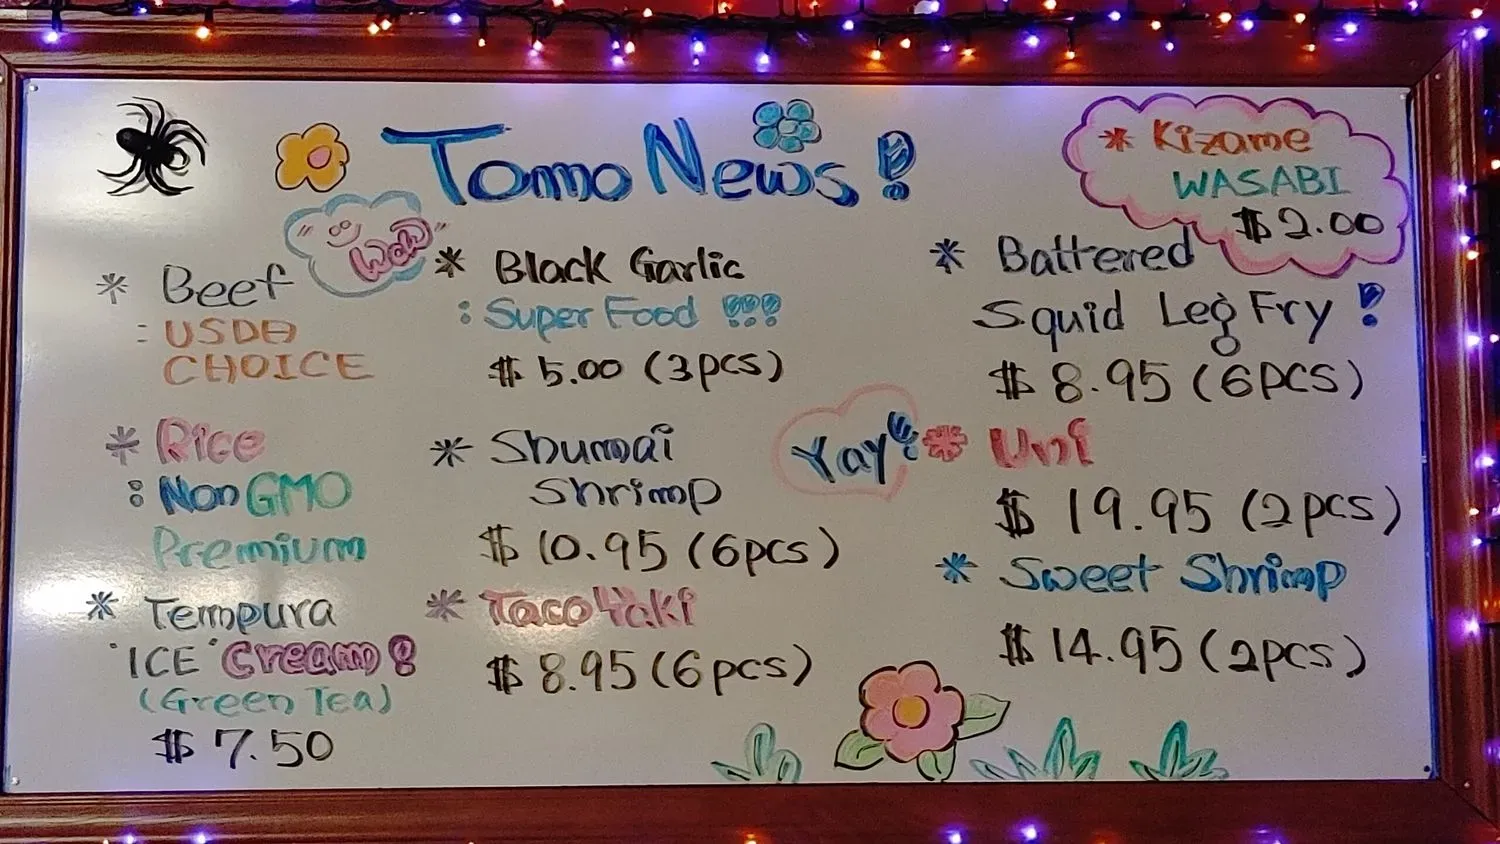 Tomo News!
* Kizame
WASABI
$2.00
Wow
* Beef
: USDA
CHOICE
* Rice
: Non GMO
Premium
* Tempura
"ICE" Cream!
(Green Tea)
$7.50
* Black Garlic
: Super Food !!!
$5.00 (3pcs)
* Shumai
Shrimp
$10.95 (6pcs)
* TacoYaki
$8.95 (6pcs)
* Battered
Squid Leg Fry!
$8.95 (6pcs)
Yay!
* Uni
$19.95 (2pcs)
* Sweet Shrimp
$14.95 (2pcs)